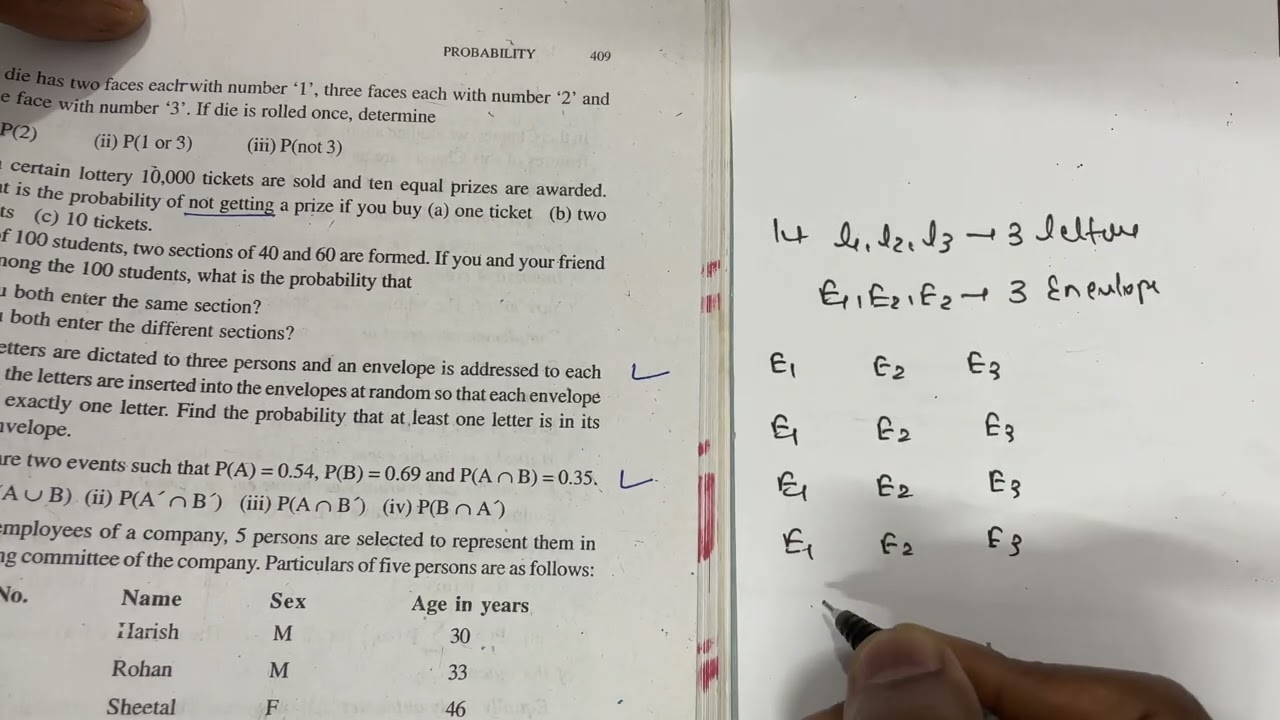 PROBABILITY 409
die has two faces each with number ‘1’, three faces each with number ‘2’ and
e face with number ‘3’. If die is rolled once, determine
P(2) (ii) P(1 or 3) (iii) P(not 3)
certain lottery 10,000 tickets are sold and ten equal prizes are awarded.
at is the probability of not getting a prize if you buy (a) one ticket (b) two
ts (c) 10 tickets.
of 100 students, two sections of 40 and 60 are formed. If you and your friend
mong the 100 students, what is the probability that
u both enter the same section?
both enter the different sections?
etters are dictated to three persons and an envelope is addressed to each
the letters are inserted into the envelopes at random so that each envelope
exactly one letter. Find the probability that at least one letter is in its
nvelope.
are two events such that P(A) = 0.54, P(B) = 0.69 and P(A ∩ B) = 0.35.
(A ∪ B) (ii) P(A´ ∩ B´) (iii) P(A ∩ B´) (iv) P(B ∩ A´)
employees of a company, 5 persons are selected to represent them in
ng committee of the company. Particulars of five persons are as follows:
No. Name Sex Age in years
Harish M 30
Rohan M 33
Sheetal F 46
l1, l2, l3 → 3 letters
E1, E2, E2 → 3 Envelope
E1 E2 E3
E1 E2 E3
E1 E2 E3
E1 E2 E3